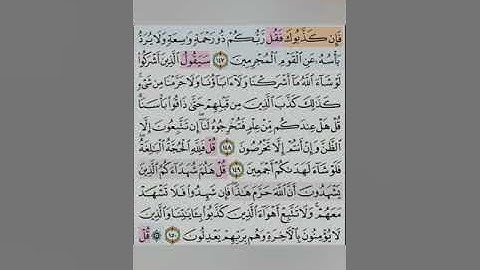 فَإِن كَذَّبُوكَ فَقُل رَّبُّكُمْ ذُو رَحْمَةٍ وَاسِعَةٍ وَلَا يُرَدُّ
بَأْسُهُ عَنِ الْقَوْمِ الْمُجْرِمِينَ ١٤٧ سَيَقُولُ الَّذِينَ أَشْرَكُوا
لَوْ شَاءَ اللَّهُ مَا أَشْرَكْنَا وَلَا آبَاؤُنَا وَلَا حَرَّمْنَا مِن شَيْءٍ
كَذَٰلِكَ كَذَّبَ الَّذِينَ مِن قَبْلِهِمْ حَتَّىٰ ذَاقُوا بَأْسَنَا
قُلْ هَلْ عِندَكُم مِّنْ عِلْمٍ فَتُخْرِجُوهُ لَنَا إِن تَتَّبِعُونَ إِلَّا
الظَّنَّ وَإِنْ أَنتُمْ إِلَّا تَخْرُصُونَ ١٤٨ قُلْ فَلِلَّهِ الْحُجَّةُ الْبَالِغَةُ
فَلَوْ شَاءَ لَهَدَاكُمْ أَجْمَعِينَ ١٤٩ قُلْ هَلُمَّ شُهَدَاءَكُمُ الَّذِينَ
يَشْهَدُونَ أَنَّ اللَّهَ حَرَّمَ هَٰذَا فَإِن شَهِدُوا فَلَا تَشْهَدْ
مَعَهُمْ وَلَا تَتَّبِعْ أَهْوَاءَ الَّذِينَ كَذَّبُوا بِآيَاتِنَا وَالَّذِينَ
لَا يُؤْمِنُونَ بِالْآخِرَةِ وَهُم بِرَبِّهِمْ يَعْدِلُونَ ١٥٠ ۞ قُلْ